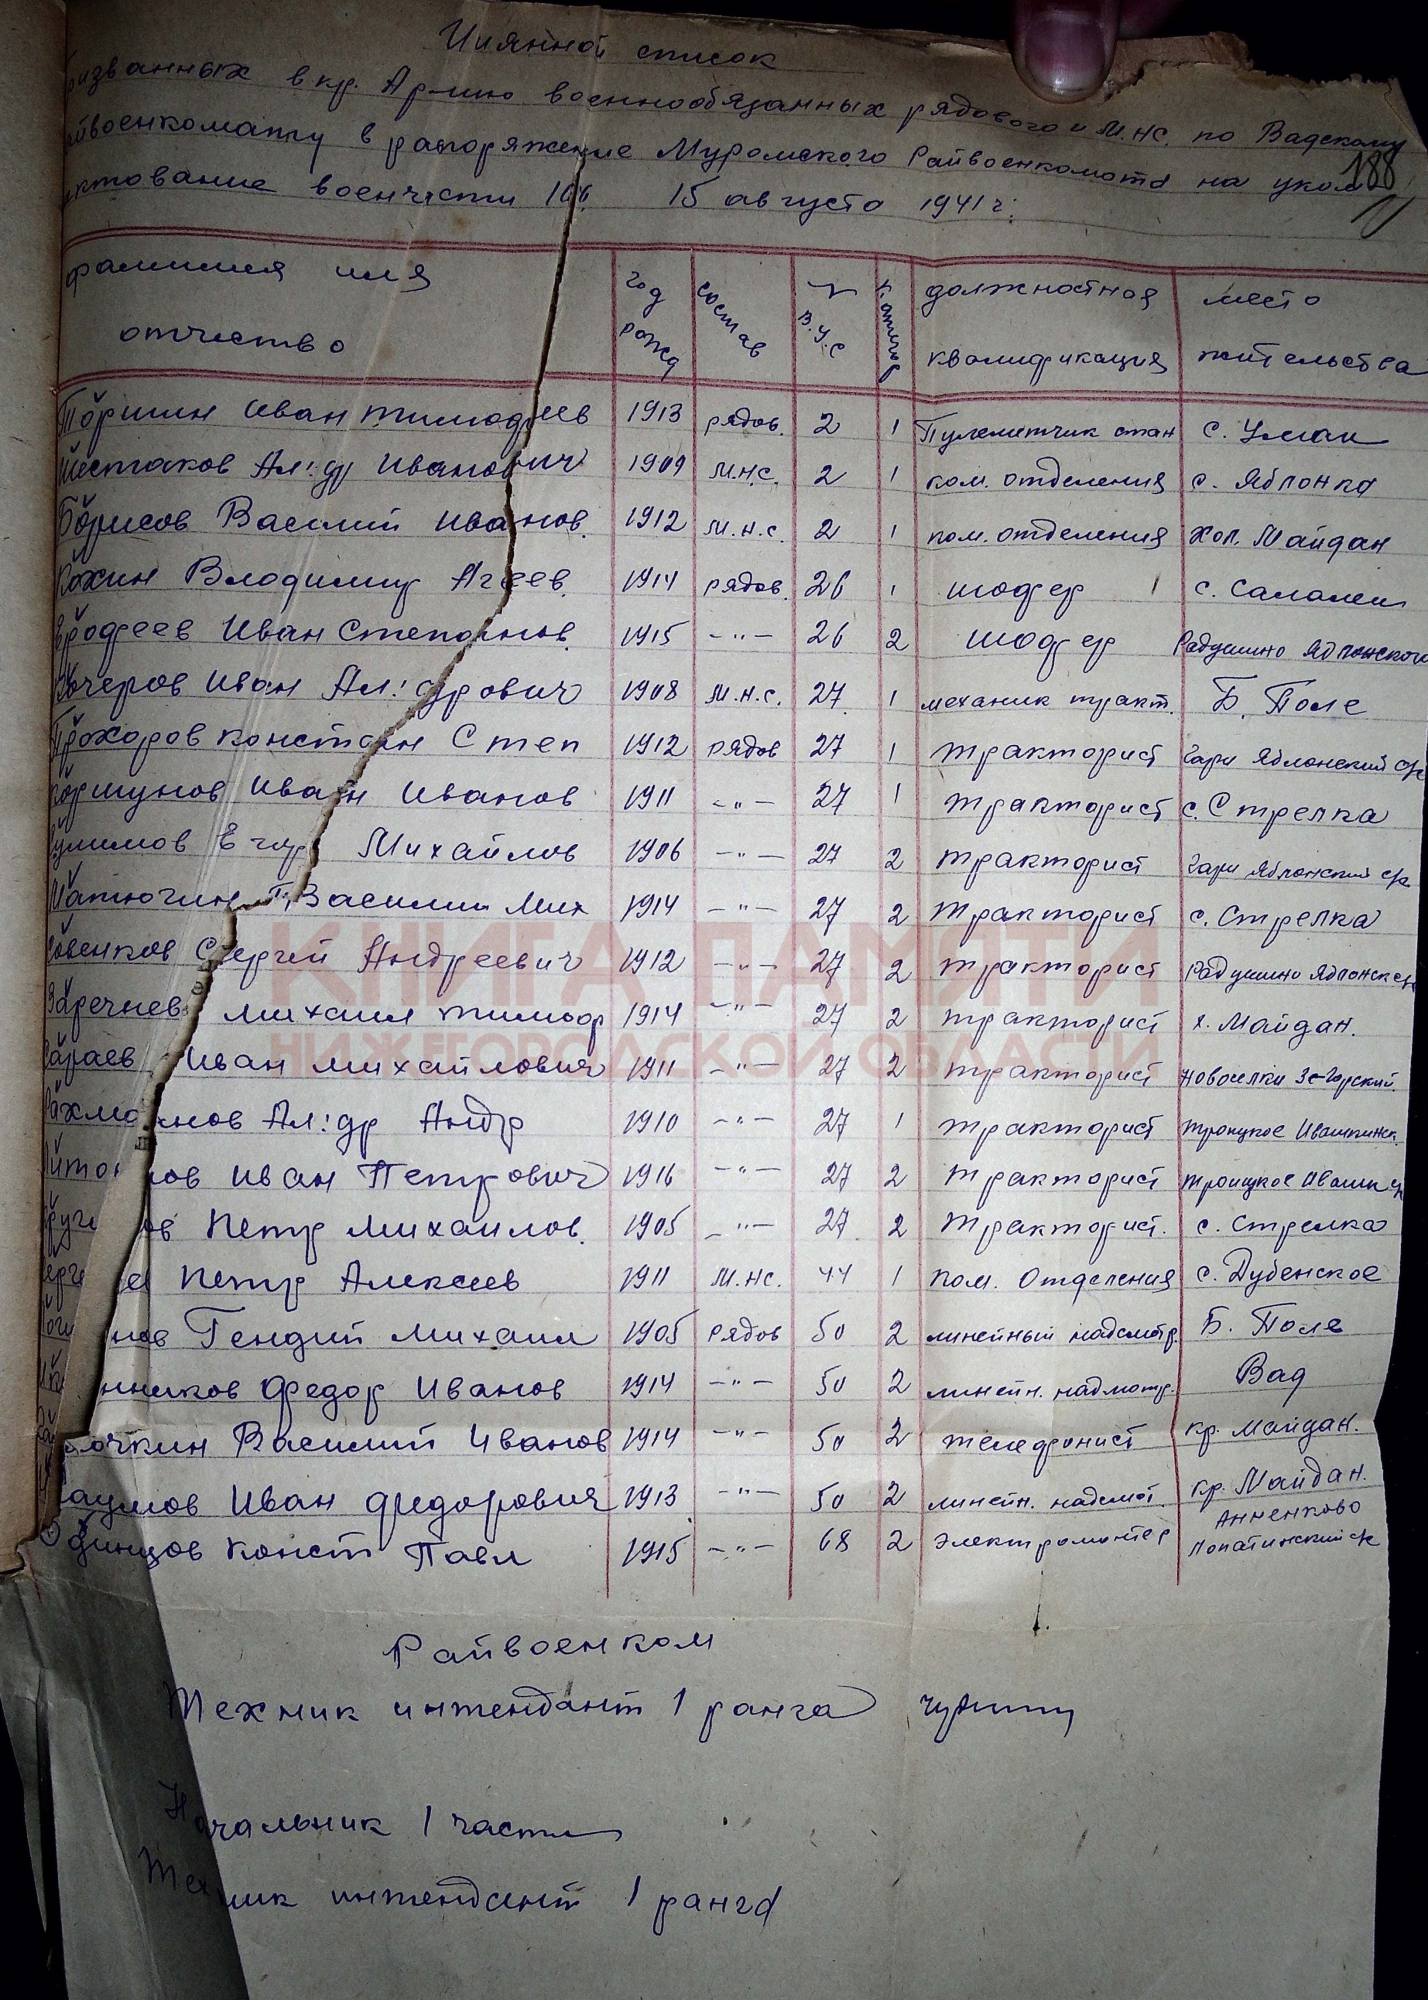 Имянной список
призванных в кр. Армию военнообязанных рядового и М.Н.С. по Вадскому
райвоенкомату в распоряжение Муромского Райвоенкомата на уком
плектование военчасти 15 августа 1941 г.
188
фамилия имя отчество год рожд состав № В.У.С категор должностная квалификация место жительства
Торшин Иван Тимофеев 1913 рядов. 2 1 Пулеметчик стан с. Умай
Шестаков Ал:др Иванович 1909 М.Н.С. 2 1 ком. отделения с. Яблонка
Борисов Василий Иванов. 1912 М.Н.С. 2 1 пом. отделения Хол. Майдан
Кокин Владимир Агеев. 1914 рядов. 26 1 шофер с. Салалей
Ерофеев Иван Степанов. 1915 -"- 26 2 шофер Радушино Яблонского
Кочеров Иван Ал:дрович 1908 М.Н.С. 27 1 механик тракт. Б. Поле
Прохоров Констан Степ 1912 рядов 27 1 тракторист Гари Яблонский с/с
Коршунов Иван Иванов 1911 -"- 27 1 тракторист с. Стрелка
Егор Михайлов 1906 -"- 27 2 тракторист Гари Яблонский с/с
Матюгин Василий Мих 1914 -"- 27 2 тракторист с. Стрелка
Сергей Андреевич 1912 -"- 27 2 тракторист Радушино Яблонск с/с
Заречнев Михаил Тимофр 1914 -"- 27 2 тракторист х. Майдан.
Сараев Иван Михайлович 1911 -"- 27 2 тракторист Новоселки
Рахманов Ал:др Андр 1910 -"- 27 1 тракторист Троицкое
ов Иван Петрович 1916 -"- 27 2 тракторист Троицкое
ов Петр Михайлов. 1905 -"- 27 2 Тракторист. с. Стрелка
Петр Алексеев 1911 М.НС. 44 1 пом. Отделения с. Дубенское
нов Гендий Михаил 1905 рядов 50 2 линейный надсмотр. Б. Поле
нников Федор Иванов 1914 -"- 50 2 линейн. надмотр. Вад
очкин Василий Иванов 1914 -"- 50 2 телефонист кр. Майдан.
Наумов Иван Федорович 1913 -"- 50 2 линейн. надсмот. кр. Майдан.
Одинцов Конст Павл 1915 -"- 68 2 электромонтер Анненково Лопатинский с/с
КНИГА ПАМЯТИ
НИЖЕГОРОДСКОЙ ОБЛАСТИ
Райвоенком
Техник интендант 1 ранга
Начальник 1 части
Техник интендант 1 ранга